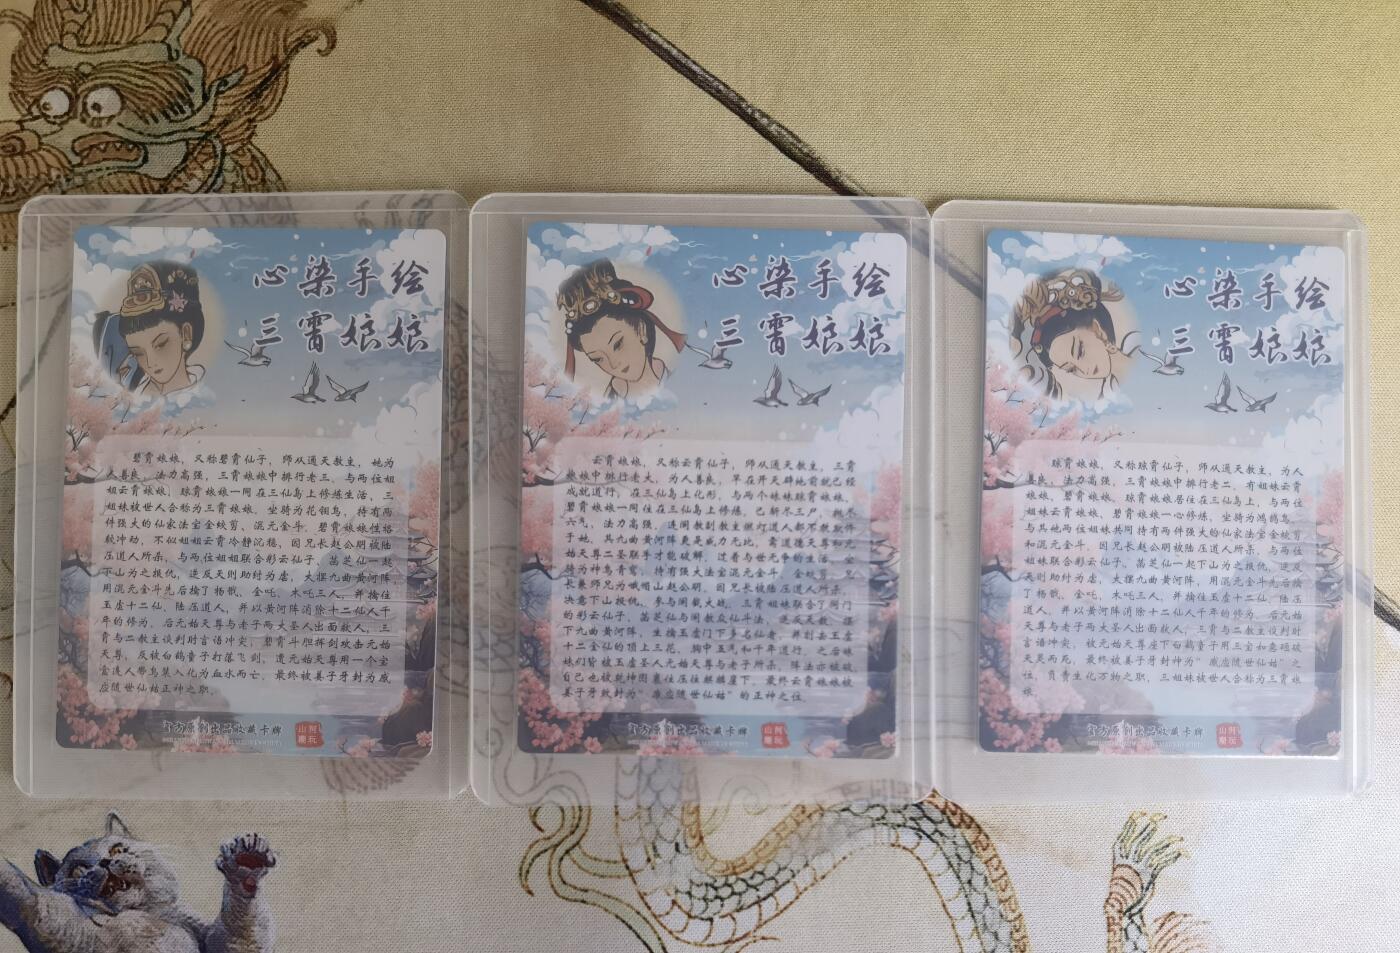 心染手绘
三霄娘娘
碧霄娘娘，又称碧霄仙子，师从通天教主，她为
人善良，法力高强，三霄娘娘中排行老三，与两位姐
姐云霄娘娘，琼霄娘娘一同在三仙岛上修炼生活，三
姐妹被世人合称为三霄娘娘，坐骑为花翎鸟，持有两
件强大的仙家法宝金蛟剪、混元金斗。碧霄娘娘性格
较冲动，不似姐姐云霄冷静沉稳，因兄长赵公明被陆
压道人所杀，与两位姐姐联合彩云仙子、菡芝仙一起
下山为之报仇，逆反天则助纣为虐，大摆九曲黄河阵，
用混元金斗先后擒了杨戬、金吒、木吒三人，并擒住
玉虚十二仙、陆压道人，并以黄河阵消除十二仙人千
年的修为，后元始天尊与老子两大圣人出面救人，三
霄与二教主谈判时言语冲突，碧霄斗胆挥剑攻击元始
天尊，反被白鹤童子打落飞剑，遭元始天尊用一个宝
盒连人带鸟装入化为血水而亡，最终被姜子牙封为感
应随世仙姑正神之职。
官方原创出品收藏卡牌
山河趣玩
心染手绘
三霄娘娘
云霄娘娘，又称云霄仙子，师从通天教主，三霄
娘娘中排行老大，为人善良，早在开天辟地前就已经
成就道行，在三仙岛上化形，与两个妹妹琼霄娘娘、
碧霄娘娘一同住在三仙岛上修炼，已斩尽三尸，抛尽
六气，法力高强，连阐教副教主燃灯道人都不敢
于她，其九曲黄河阵更是威力无比，需道德天尊和元
始天尊二圣联手才能破解，过着与世无争的生活，坐
骑为神鸟青鸾，持有强大法宝混元金斗、金蛟剪，兄
长兼师兄为峨嵋山赵公明，因兄长被陆压道人所杀，
决意下山报仇，参与阐截大战，三霄姐妹联合了同门
的彩云仙子、菡芝仙与阐教众仙斗法，逆反天数，摆
下九曲黄河阵，生擒玉虚门下多名仙者，并削去玉虚
十二金仙的顶上三花，胸中五气和千年道行，之后姐
妹们皆被玉虚圣人元始天尊与老子所杀，阵法亦被破
自己也被乾坤图裹住压住麒麟崖下，最终云霄娘娘被
姜子牙敕封为“感应随世仙姑”的正神之位。
官方原创出品收藏卡牌
山河趣玩
心染手绘
三霄娘娘
琼霄娘娘，又称琼霄仙子，师从通天教主，为人
善良，法力高强，三霄娘娘中排行老二，有姐妹云霄
娘娘、碧霄娘娘，琼霄娘娘居住在三仙岛上，与两位
姐妹云霄娘娘、碧霄娘娘一心修炼，坐骑为鸿鹄鸟，
与其他两位姐妹共同持有两件强大的仙家法宝金蛟剪
和混元金斗。因兄长赵公明被陆压道人所杀，与两位
姐妹联合彩云仙子、菡芝仙一起下山为之报仇，逆反
天则助纣为虐，大摆九曲黄河阵，用混元金斗先后擒
了杨戬、金吒、木吒三人，并擒住玉虚十二仙、陆压
道人，并以黄河阵消除十二仙人千年的修为，后元始
天尊与老子两大圣人出面救人，三霄与二教主谈判时
言语冲突，被元始天尊座下白鹤童子用三宝如意砸破
天灵而死，最终被姜子牙封神为“感应随世仙姑”之
位，负责生化万物之职，三姐妹被世人合称为三霄娘
娘。
官方原创出品收藏卡牌
山河趣玩